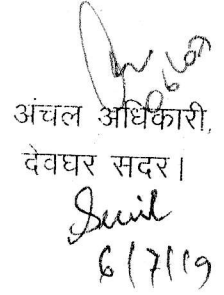 अंचल अधिकारी,
देवघर सदर।
Sunil
6/7/19